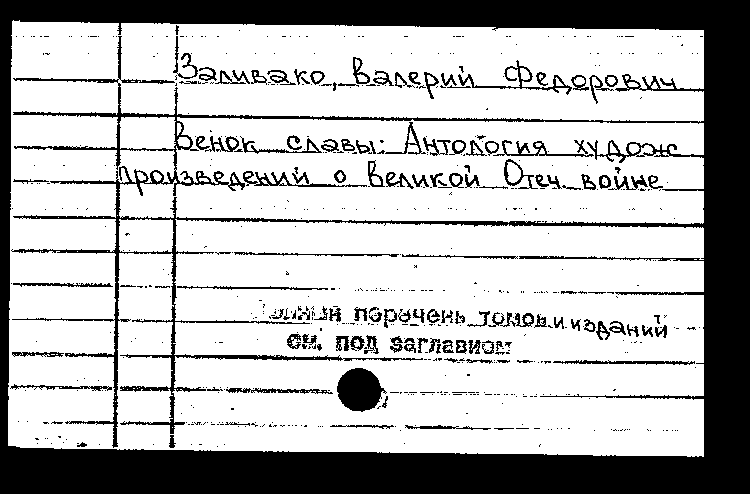 Заливако, Валерий Федорович
Венок славы: Антология худож
произведений о Великой Отеч. войне
Полный перечень томов и изданий
см. под заглавием